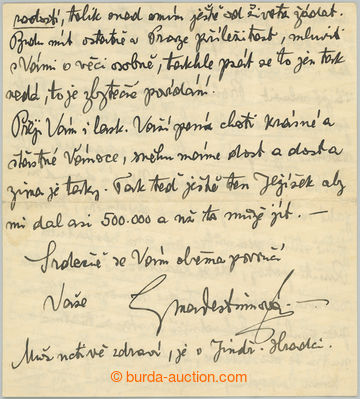 radostí, tolik snad smím ještě od života žádat.
Budu mít ostatně v Praze příležitost, mluviti
s Vámi o věci osobně, takhle psát se to jen tak
nedá, to je zbytečné povídání.
Přeji Vám i lask. Vaší paní choti krásné a
šťastné Vánoce, sněhu máme dost a dost a
zima je taky. Tak teď ještě ten Ježíšek aby
mi dal asi 500.000 a už to může jít. —
Srdečně se Vám oběma poroučí
Vaše
Ema Destinnová. —
Muž uctivě zdraví, je v Jindř. Hradci.
© burda-auction.com